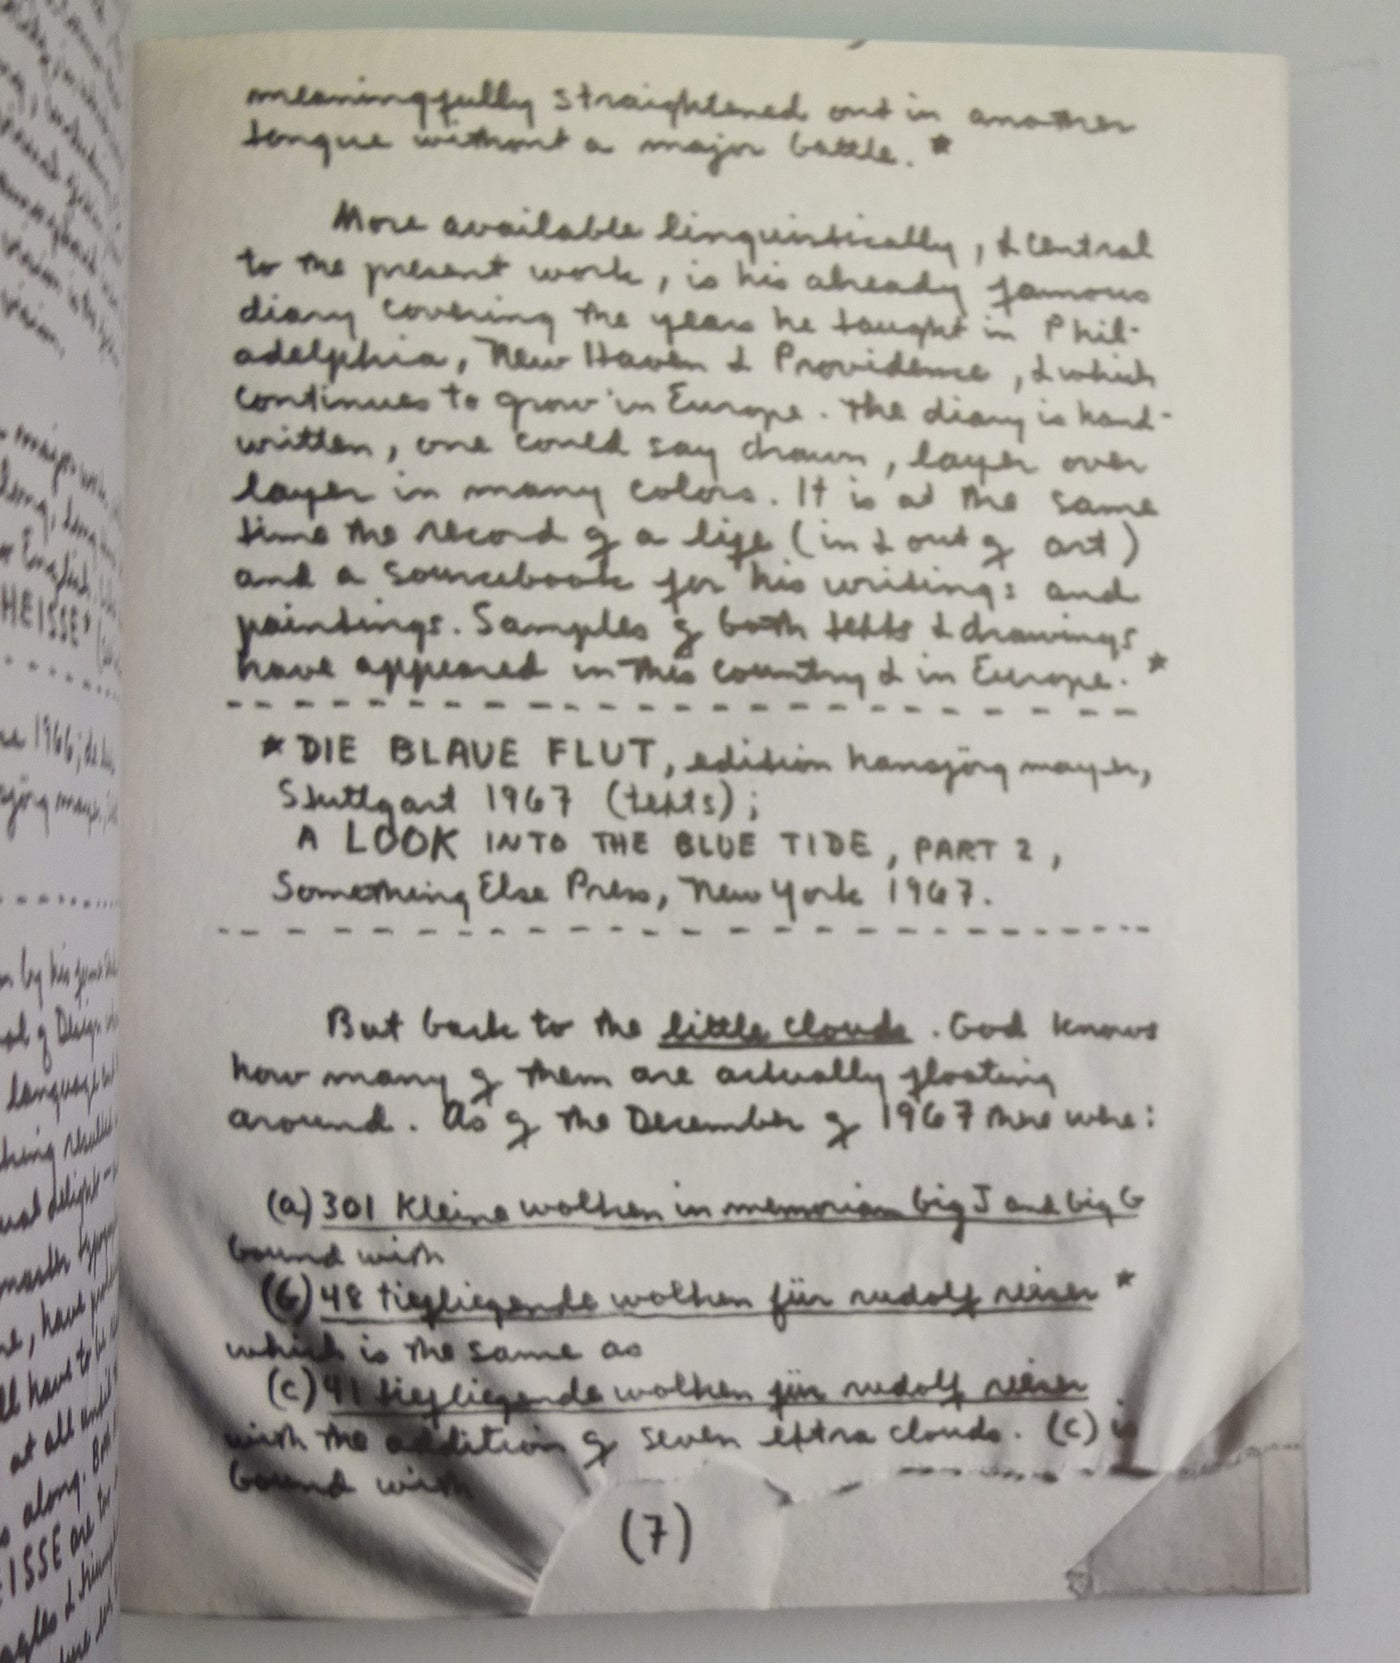 meaningfully straightened out in another
tongue without a major battle. *
More available linguistically, & central
to the present work, is his already famous
diary covering the years he taught in Phil-
adelphia, New Haven & Providence, & which
continues to grow in Europe. The diary is hand-
written, one could say drawn, layer over
layer in many colors. It is at the same
time the record of a life (in & out of art)
and a sourcebook for his writings and
paintings. Samples of both texts & drawings
have appeared in this country & in Europe. *
* DIE BLAUE FLUT, edition hansjörg mayer,
Stuttgart 1967 (texts);
A LOOK INTO THE BLUE TIDE, PART 2,
Something Else Press, New York 1967.
But back to the little clouds. God knows
how many of them are actually floating
around. As of the December of 1967 there were:
(a) 301 kleine wolken in memoriam big J and big G
bound with
(b) 48 tiefliegende wolken für rudolf rieser *
which is the same as
(c) 41 tiefliegende wolken für rudolf rieser
with the addition of seven extra clouds. (c) is
bound with
(7)